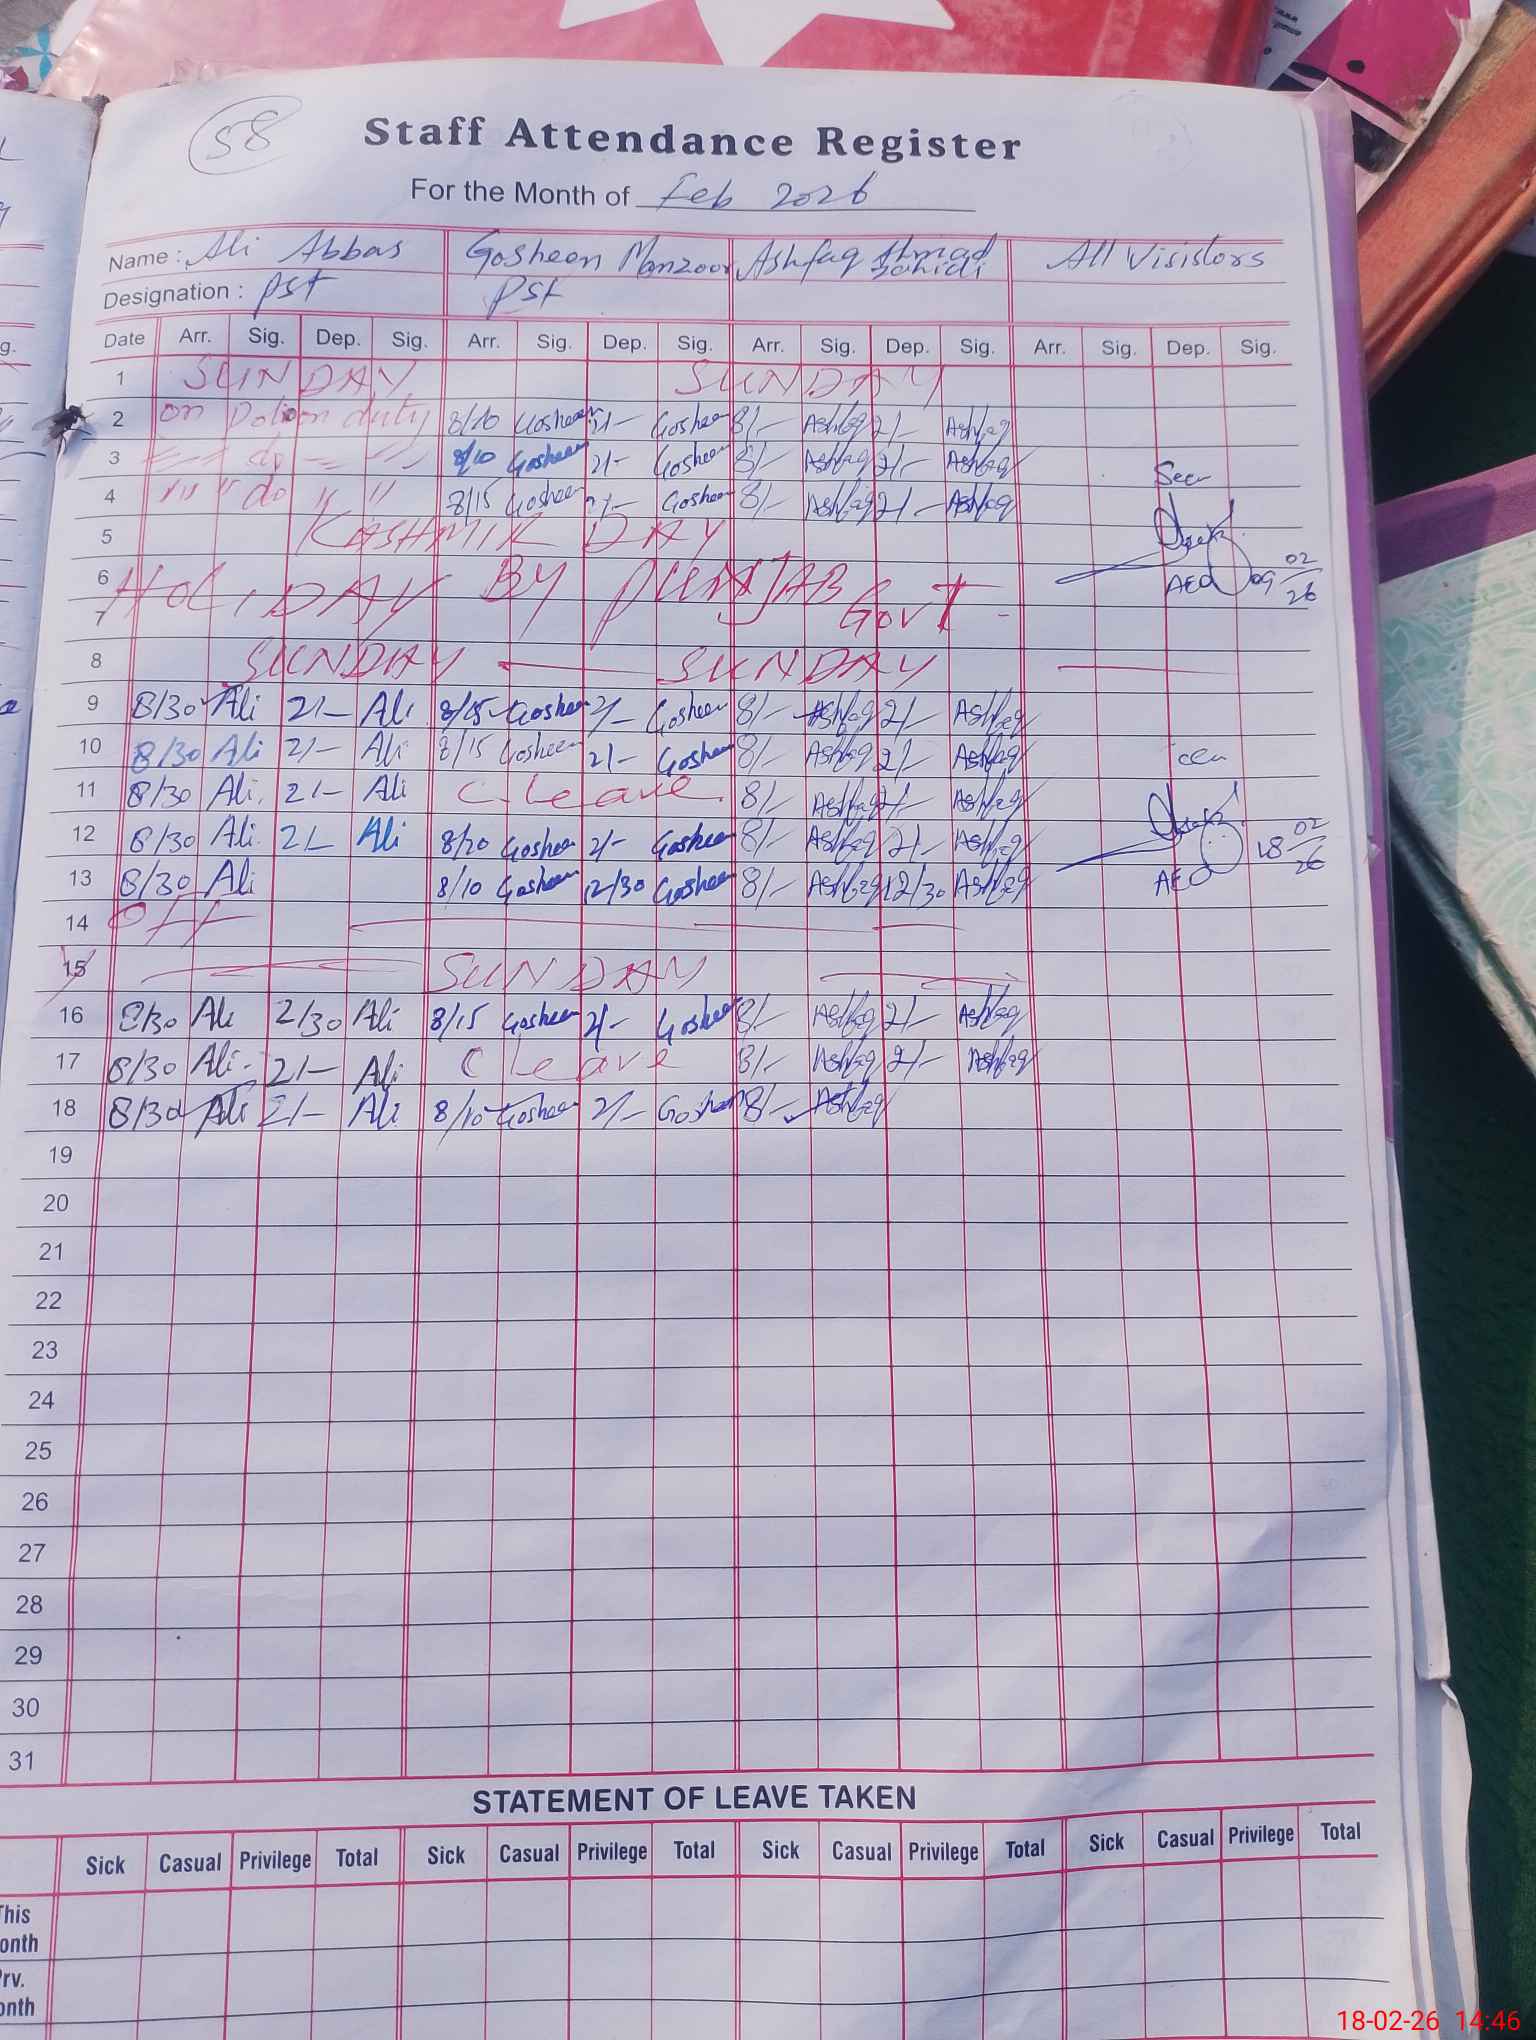 58
Staff Attendance Register
For the Month of Feb 2026
Name : Ali Abbas Gosheen Manzoor Ashfaq Ahmad Zahidi All Visistors
Designation : PST PST
Date Arr. Sig. Dep. Sig. Arr. Sig. Dep. Sig. Arr. Sig. Dep. Sig. Arr. Sig. Dep. Sig.
1 SUNDAY SUNDAY
2 on duty 8/10 Gosheen 2/- Gosheen 8/- Ashfaq 2/- Ashfaq
3 do 8/10 Gosheen 2/- Gosheen 8/- Ashfaq 2/- Ashfaq
4 " " do " " 8/15 Gosheen 2/- Gosheen 8/- Ashfaq 2/- Ashfaq Seen
5 KASHMIR DAY
6 HOLIDAY BY PUNJAB GOVT - AEO 09 02/26
7
8 SUNDAY — SUNDAY —
9 8/30 Ali 2/- Ali 8/15 Gosheen 2/- Gosheen 8/- Ashfaq 2/- Ashfaq
10 8/30 Ali 2/- Ali 8/15 Gosheen 2/- Gosheen 8/- Ashfaq 2/- Ashfaq
11 8/30 Ali. 2/- Ali C. Leave. 8/- Ashfaq 2/- Ashfaq
12 8/30 Ali. 2/- Ali 8/20 Gosheen 2/- Gosheen 8/- Ashfaq 2/- Ashfaq
13 8/30 Ali 8/10 Gosheen 12/30 Gosheen 8/- Ashfaq 12/30 Ashfaq AEO 18 02/26
14 Off
15 SUNDAY
16 8/30 Ali 2/30 Ali 8/15 Gosheen 2/- Gosheen 8/- Ashfaq 2/- Ashfaq
17 8/30 Ali- 2/- Ali C Leave 8/- Ashfaq 2/- Ashfaq
18 8/30 Ali 2/- Ali 8/10 Gosheen 2/- Gosheen 8/- Ashfaq
19
20
21
22
23
24
25
26
27
28
29
30
31
STATEMENT OF LEAVE TAKEN
Sick Casual Privilege Total Sick Casual Privilege Total Sick Casual Privilege Total Sick Casual Privilege Total
This
onth
Prv.
onth
18-02-26 14:46